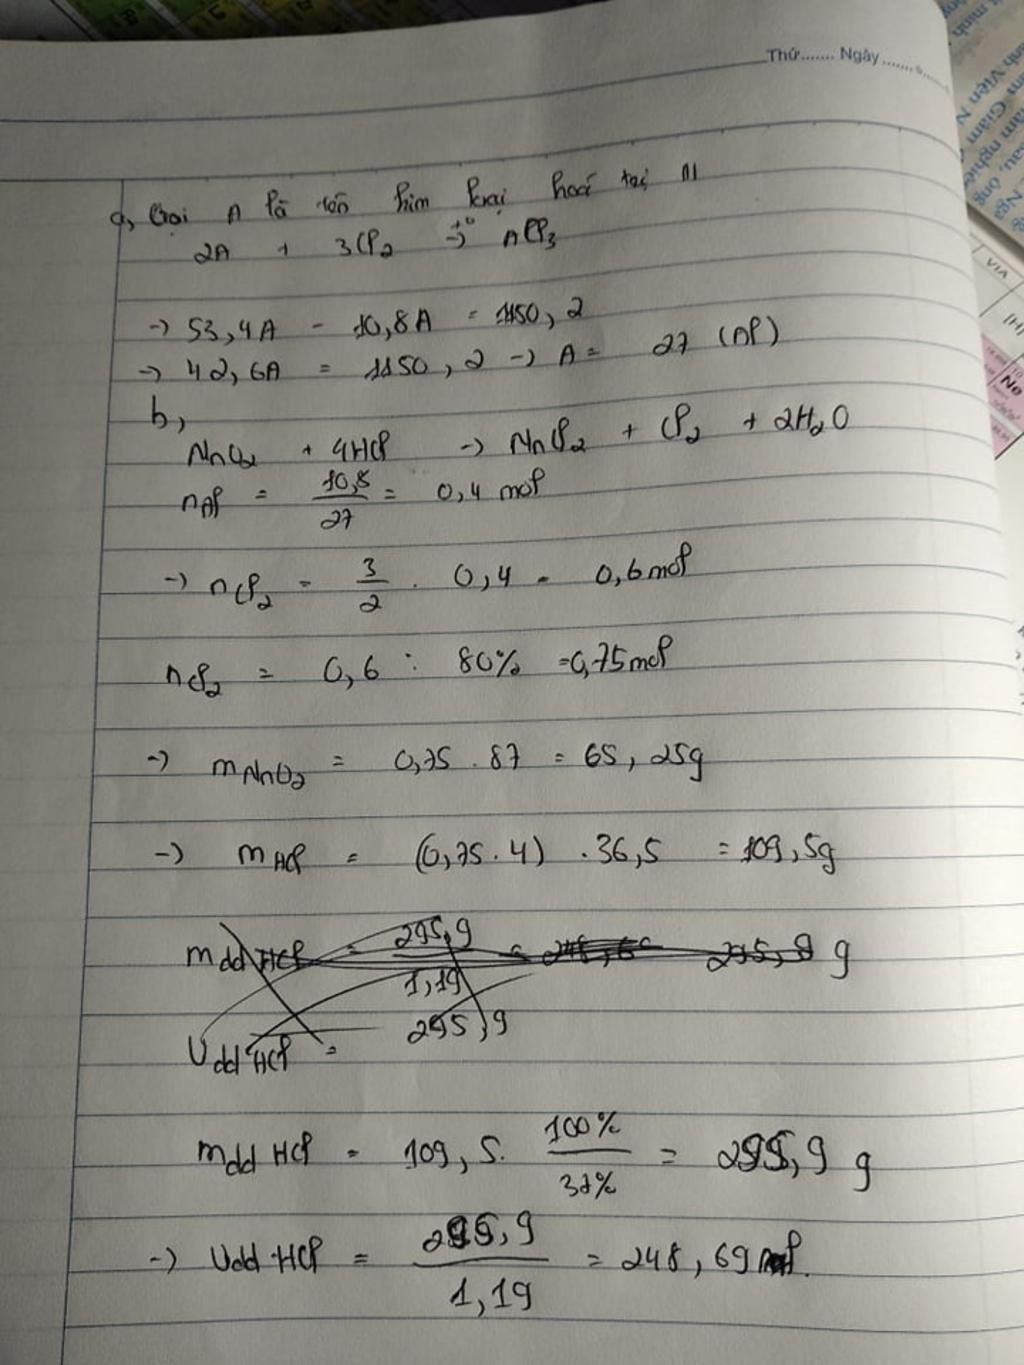 Thứ....... Ngày.......
a, Gọi A là tên kim loại hoá trị III
2A + 3Cl₂ →t° ACl₃
→ 53,4A - 10,8A = 1150,2
→ 42,6A = 1150,2 → A = 27 (Al)
b,
MnO₂ + 4HCl → MnCl₂ + Cl₂ + 2H₂O
nAl = 10,8/27 = 0,4 mol
→ nCl₂ = 3/2 . 0,4 = 0,6 mol
nCl₂ = 0,6 : 80% = 0,75 mol
→ mMnO₂ = 0,75 . 87 = 65,25g
→ mHCl = (0,75 . 4) . 36,5 = 109,5g
mdd HCl = 295,9/1,19 = 295,9 g
Vdd HCl = 295,9
mdd HCl = 109,5. 100%/37% = 295,9 g
→ Vdd HCl = 295,9/1,19 = 248,69 ml.
VIA
No